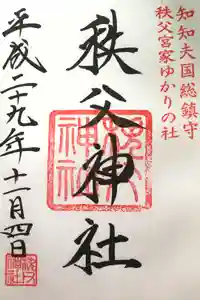 知知夫国総鎮守
秩父宮家ゆかりの社
秩父神社
平成二十九年十一月四日
秩父神社